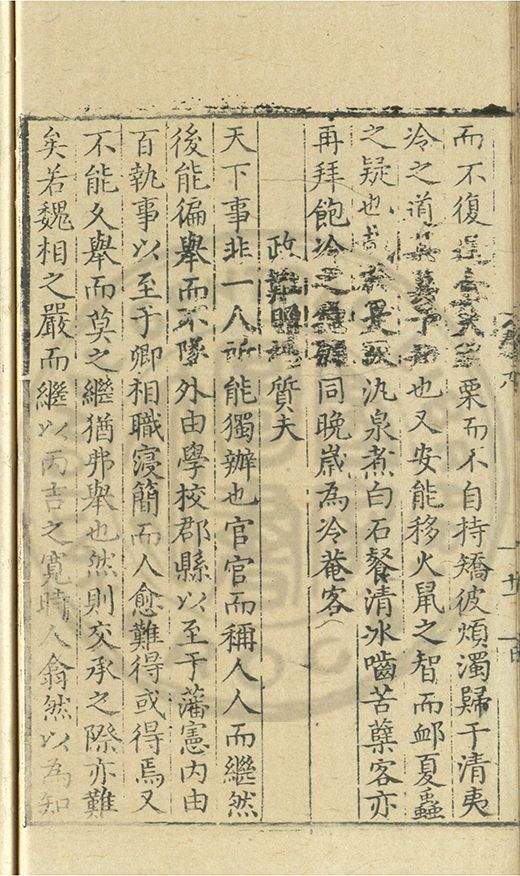 而不復栗而不自持矯彼煩濁歸于清夷
冷之道也又安能移火鼠之智而卹夏蟲
之疑也氿泉煮白石餐清冰嚙苦蘖客亦
再拜飽冷之同晚歲為冷菴客
政質夫
天下事非一人所能獨辦也官官而稱人人而繼然
後能徧舉而不隊外由學校郡縣以至于藩憲內由
百執事以至于卿相職寖簡而人愈難得或得焉又
不能久舉而莫之繼猶弗舉也然則交承之際亦難
矣若魏相之嚴而繼以丙吉之寬時人翕然以為知